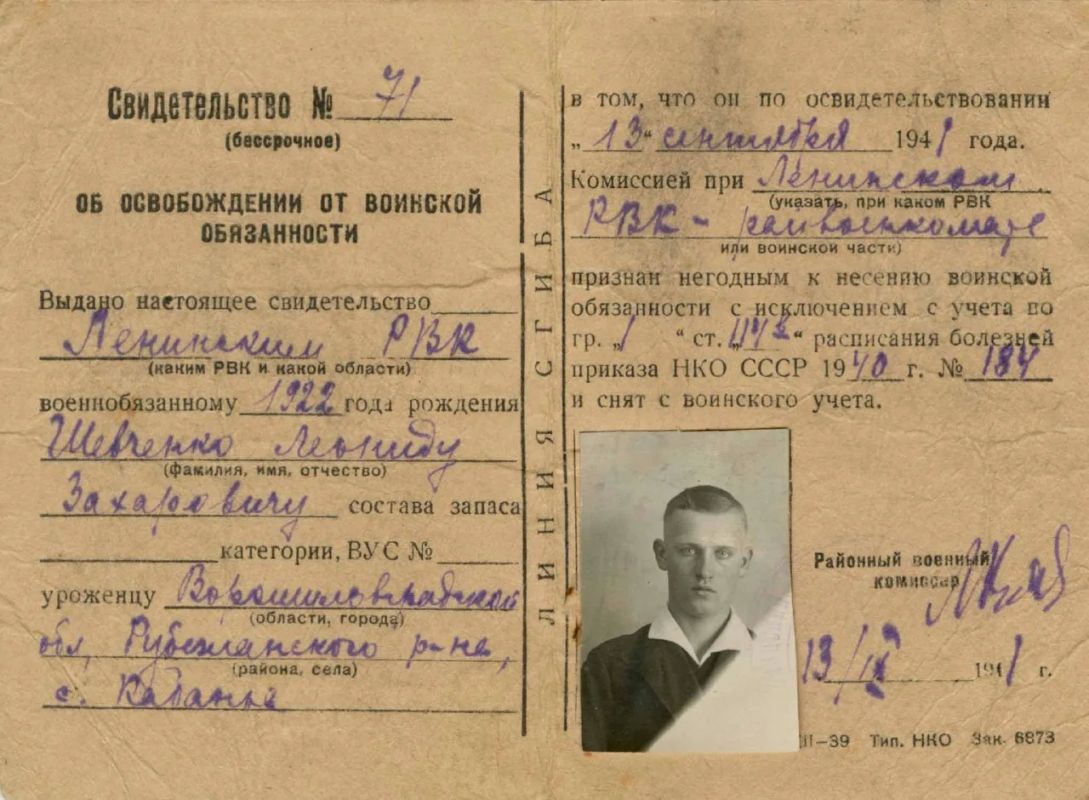 Свидетельство № 71
(бессрочное)
ОБ ОСВОБОЖДЕНИИ ОТ ВОИНСКОЙ
ОБЯЗАННОСТИ
Выдано настоящее свидетельство
Ленинским РВК
(каким РВК и какой области)
военнобязанному 1922 года рождения
Шевченко Леониду
(фамилия, имя, отчество)
Захаровичу состава запаса
категории, ВУС №
уроженцу Ворошиловградской
(области, города)
обл, Рубежанского р-на,
(района, села)
с. Кабанье
ЛИНИЯ СГИБА
в том, что он по освидетельствовании
„13“ сентября 1941 года.
Комиссией при Ленинском
(указать, при каком РВК
РВК - райвоенкомате
или воинской части)
признан негодным к несению воинской
обязанности с исключением с учета по
гр. „1“ ст. „ “ расписания болезней
приказа НКО СССР 1940 г. № 184
и снят с воинского учета.
Районный военный
комиссар
13/IX 1941 г.
-39 Тип. НКО Зак. 6873